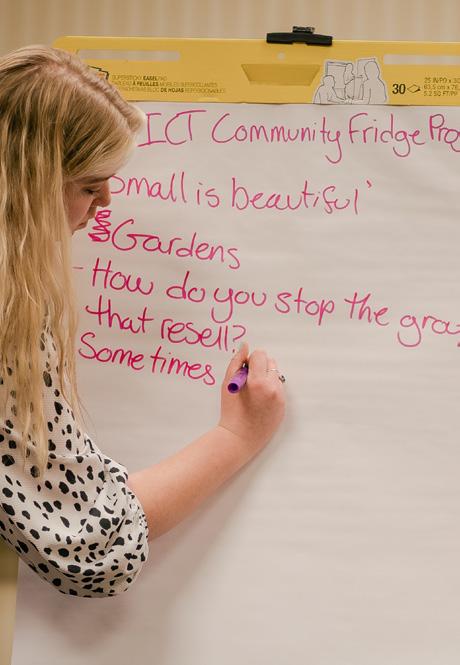 SUPERSTICKY EASEL PAD
TABLERO À FEUILLES MOBILES SUPERCOLLANTES
DE HOJAS REPOSICIONABLES
30
25 IN
63,5 cm
5.2 SQ FT/PI
ICT Community Fridge
Small is beautiful'
Gardens
- How do you stop the
that resell?
Sometimes